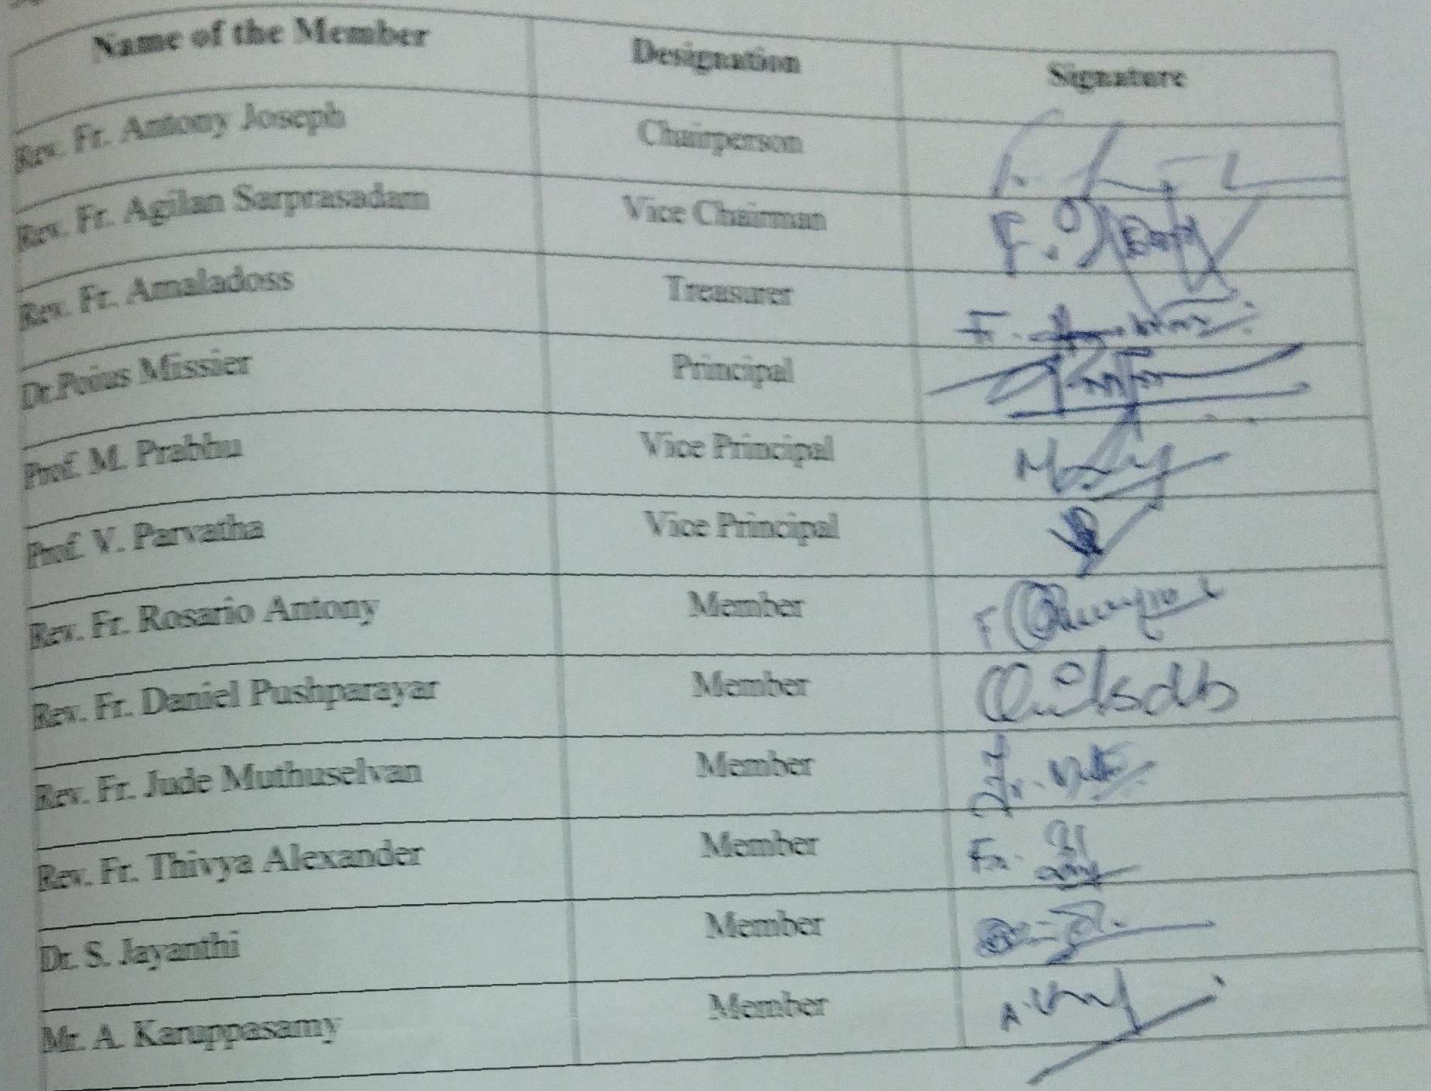 Name of the Member Designation Signature
Rev. Fr. Antony Joseph Chairperson
Rev. Fr. Agilan Sarprasadam Vice Chairman
Rev. Fr. Amaladoss Treasurer
Dr.Poius Missier Principal
Prof. M. Prabhu Vice Principal
Prof. V. Parvatha Vice Principal
Rev. Fr. Rosario Antony Member
Rev. Fr. Daniel Pushparayar Member
Rev. Fr. Jude Muthuselvan Member
Rev. Fr. Thivya Alexander Member
Dr. S. Jayanthi Member
Mr. A. Karuppasamy Member